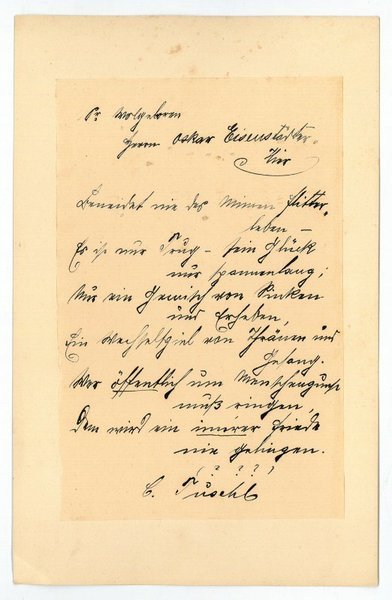 Sr Wolgeboren
Herrn Oskar Eisenstädter.
Hier
Beneidet nie des Mimen Flitter„
leben –
Es ist nur Trug – sein Glück
nur spannenlang;
Nur ein Gemisch von Sinken
und Erheben,
Ein Wechselspiel von Thränen und
Gesang.
Wer öffentlich um Menschengunst
muß ringen,
Dem wird ein innerer Friede
nie gelingen.
(? ? ? ?)
C. Tuschl